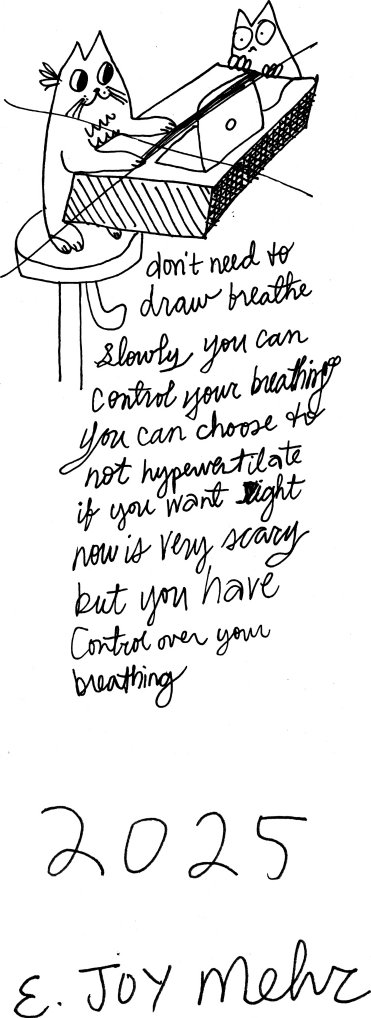 don't need to
draw breathe
slowly you can
control your breathing
you can choose to
not hyperventilate
if you want right
now is very scary
but you have
control over your
breathing
2025
E. Joy Mehr